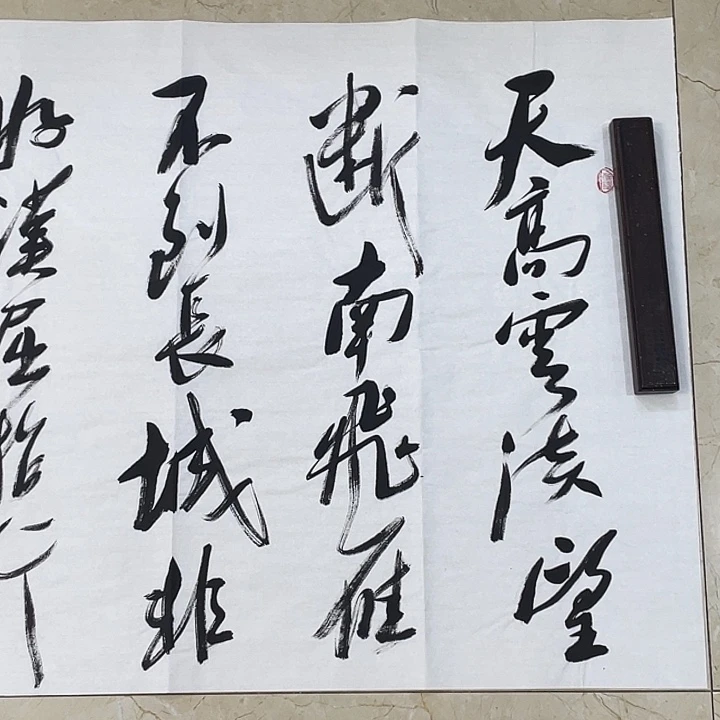 天高雲淡望
斷南飛雁
不到長城非
好漢屈指行